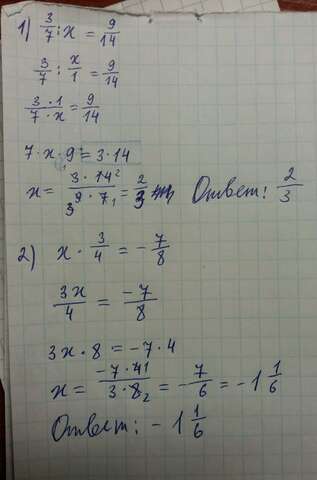 1) 3/7 : x = 9/14
3/7 : x/1 = 9/14
3·1/7·x = 9/14
7·x·9 = 3·14
x = 3·14²/9·7₁ = 2/3 Ответ: 2/3
2) x · 3/4 = -7/8
3x/4 = -7/8
3x·8 = -7·4
x = -7·4¹/3·8₂ = -7/6 = -1 1/6
Ответ: -1 1/6